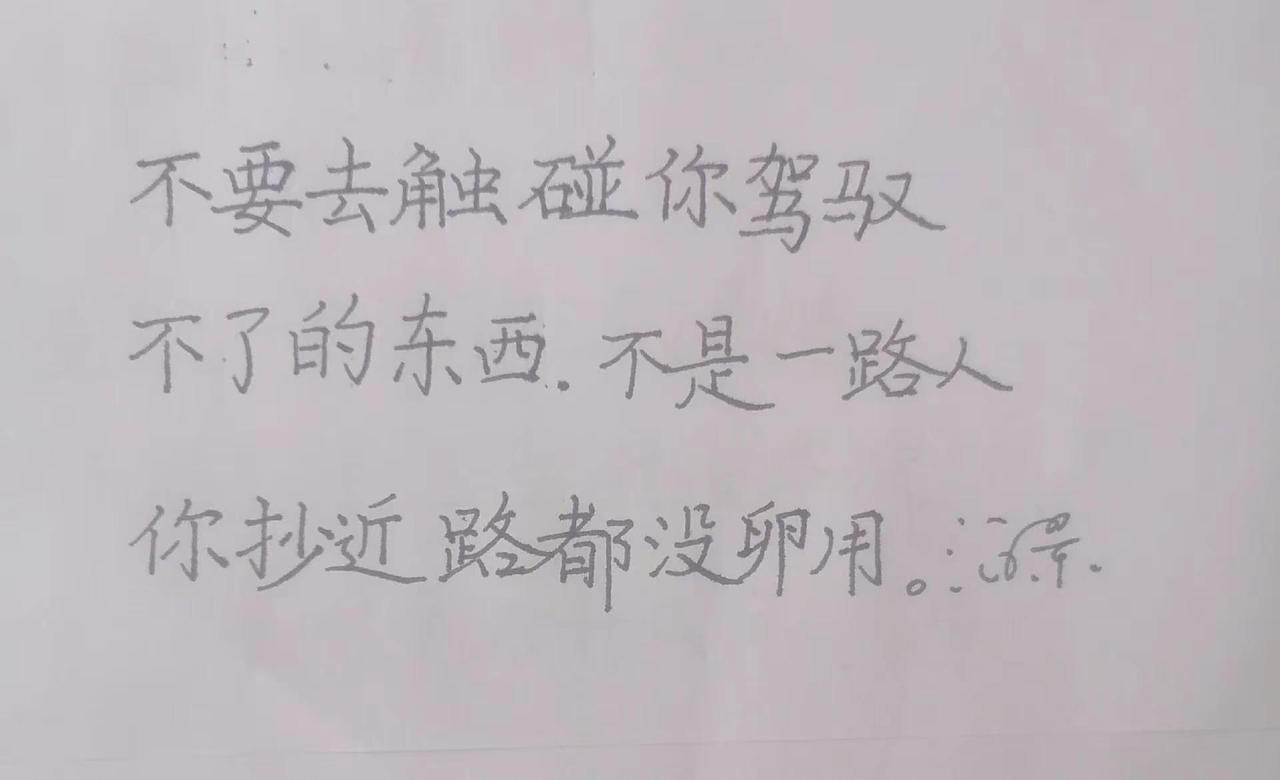 不要去触碰你驾驭
不了的东西.不是一路人
你抄近路都没卵用。